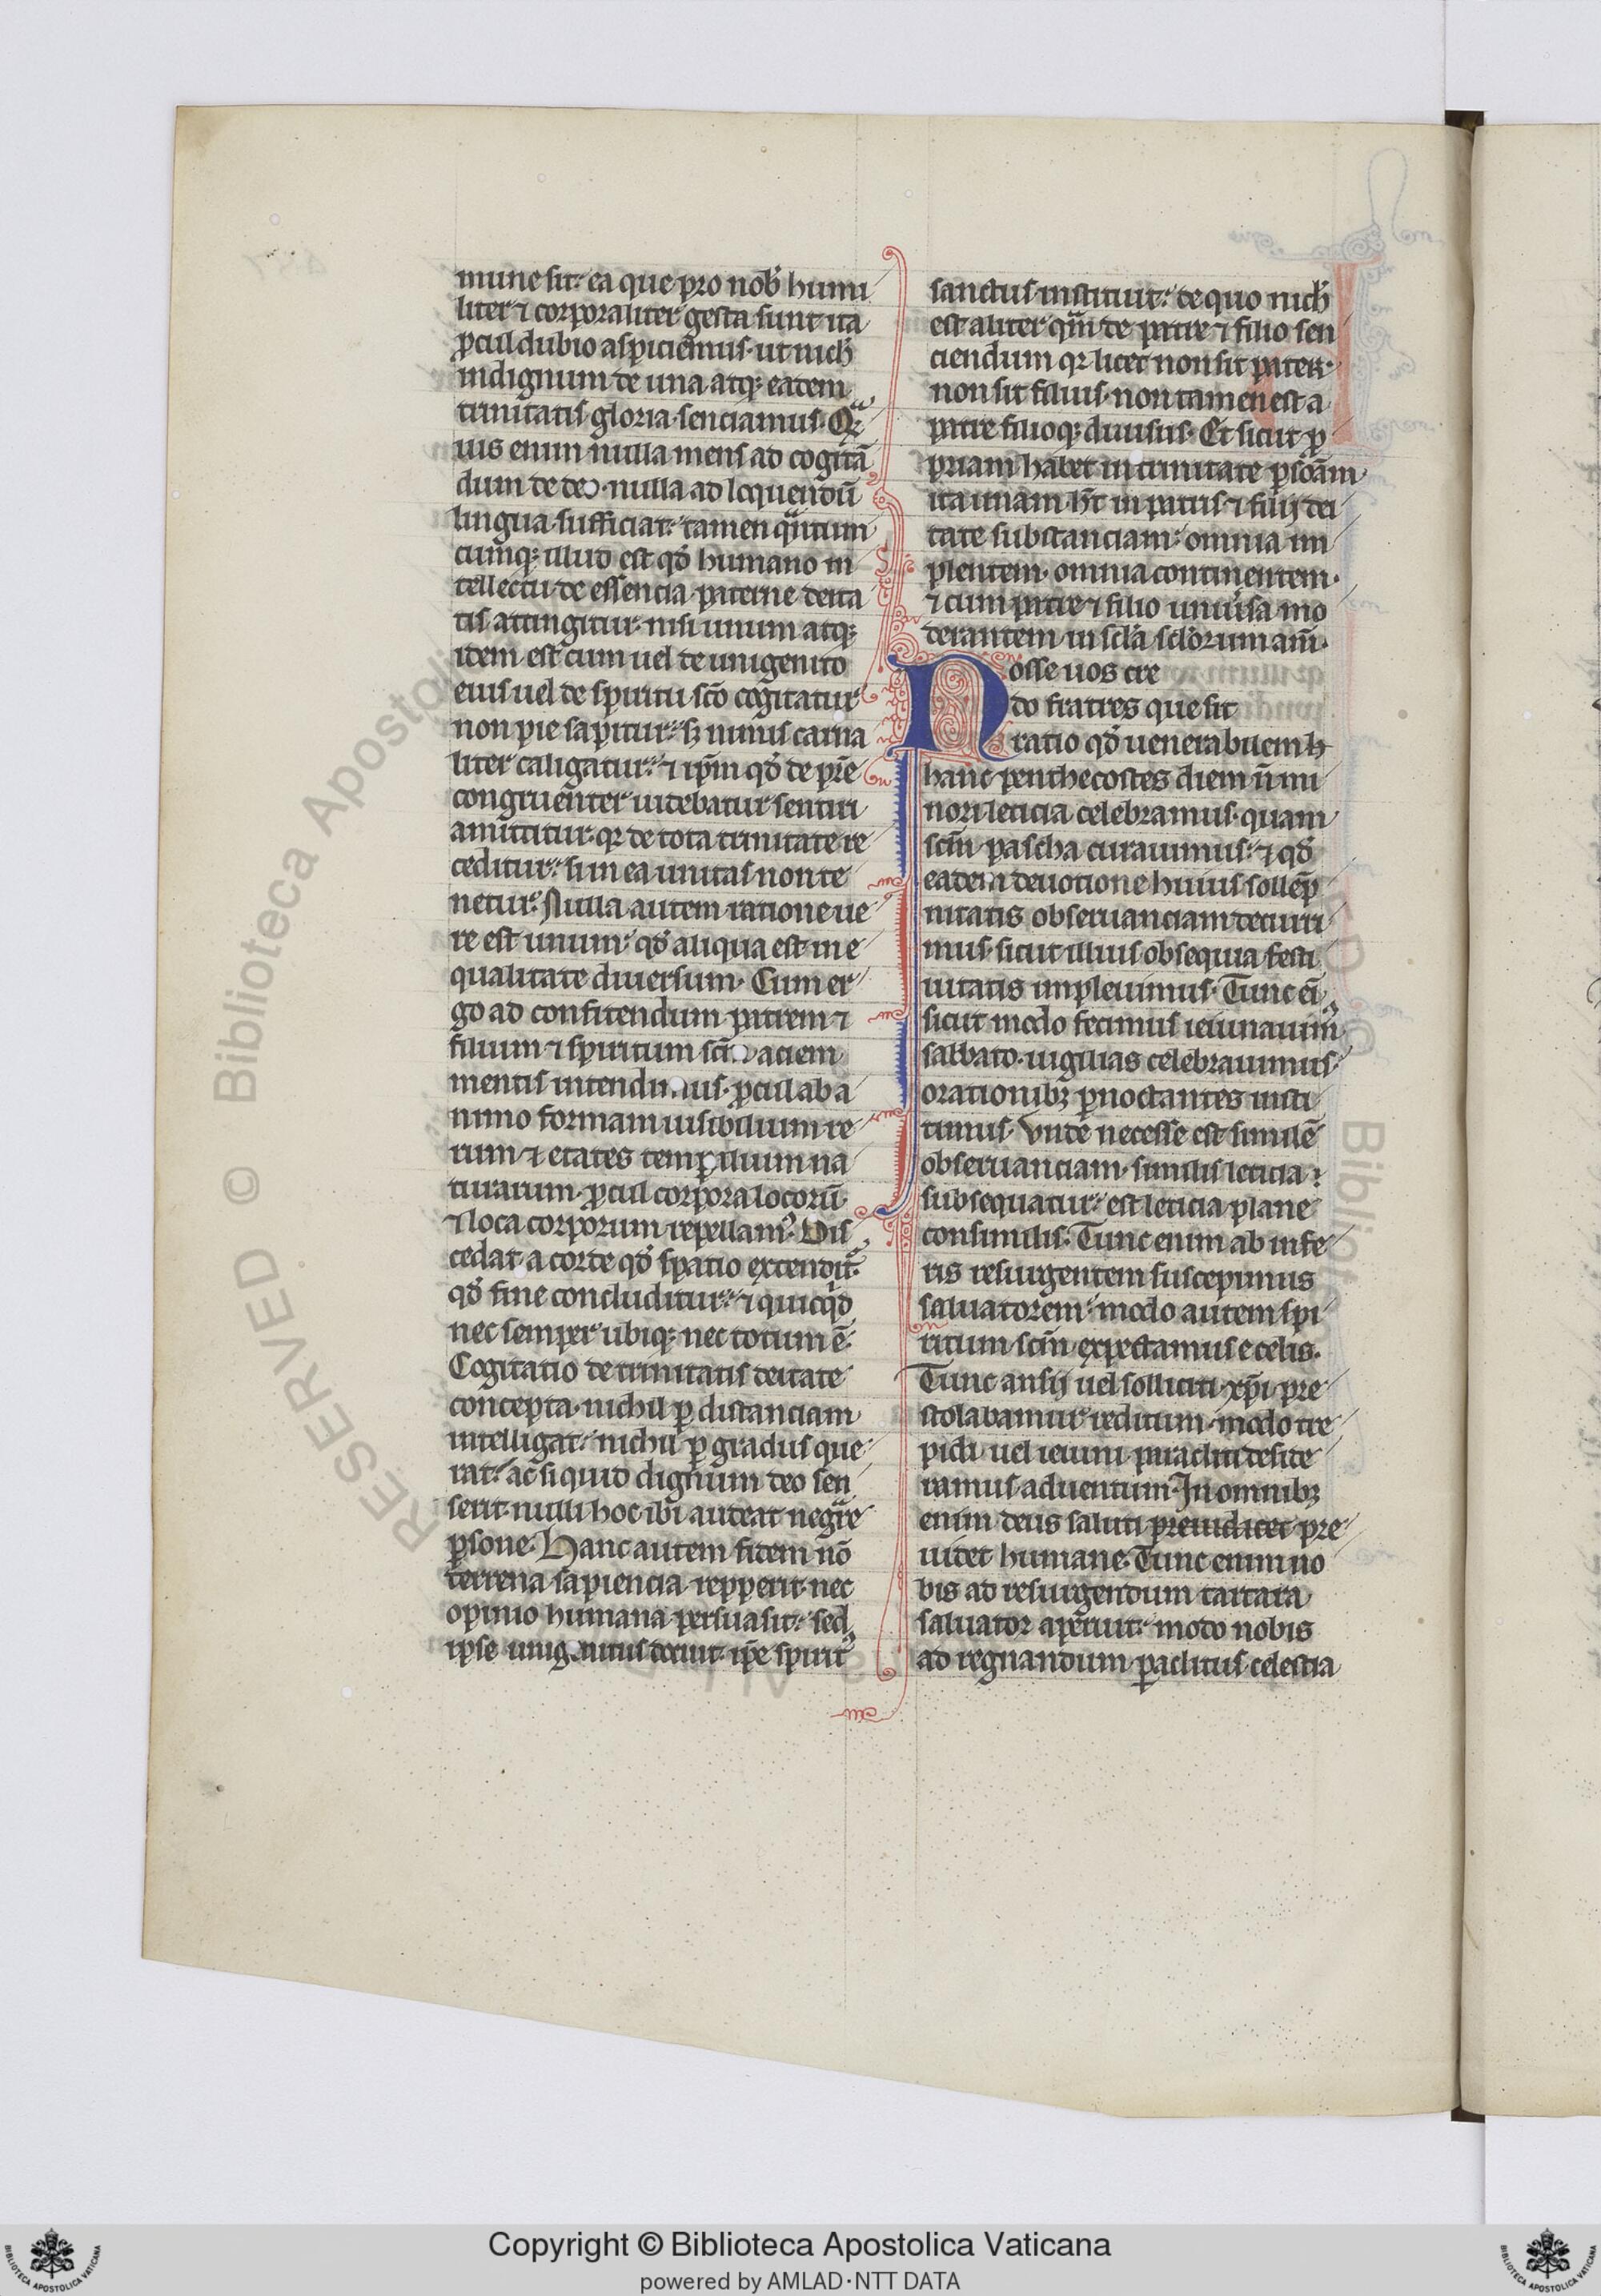 mune sit: ea que pro nob̾ humi
liter ⁊ corporaliter gesta sunt ita
ꝓcul dubio aspiciemus. ut nich̾
indignum de una atqꝫ eadem
trinitatis gloria senciamus. Qͣꝫ
uis enim nulla mens ad cogitā
dum de deo. nulla ad loquendū
lingua sufficiat: tamen qͣntum
cumqꝫ illud est qd̾ humano in
tellectu de essencia paterne deita
tis attingitur. nisi unum atqꝫ
idem est cum uel de unigenito
eius uel de spiritu sc̄o cogitatur
non pie sapitur: sꝫ nimis carna
liter caligatur: ⁊ ip̄m qd̾ de pr̄e
congruenter uidebatur sentiri
amittitur. qꝛ de tota trinitate re
ceditur: si in ea unitas non te
netur. Nulla autem ratione ue
re est unum: qd̾ aliqua est ine
qualitate diuersum. Cum er
go ad confitendum patrem ⁊
filium ⁊ spiritum sc̄m aciem
mentis intendimus. ꝓcul ab a
nimo formam uisibilium re
rum ⁊ etates temꝑalium na
turarum. ꝓcul corpora locorū.
⁊ loca corporum repellamꝰ. Dis
cedat a corde qd̾ spatio extendit᷑.
qd̾ fine concluditur: ⁊ quicq̇d
nec semper ubiqꝫ nec totum ē.
Cogitatio de trinitatis deitate
concepta nichil ꝑ distanciam
intelligat: nichil ꝑ gradus que
rat: ac si quid dignum deo sen
serit. nulli hoc ibi audeat negͣre
ꝑsone. Hanc autem fidem nō
terrena sapiencia repperit. nec
opinio humana persuasit: sed
ipse unigenitus docuit. ip̄e spiritꝰ
sanctus instituit: de quo nich̾
est aliter qͣm de patre ⁊ filio sen
ciendum qꝛ licet non sit pater.
non sit filius. non tamen est a
patre filioqꝫ diuisus. Et sicut ꝓ
priam habet in trinitate ꝑsōam
ita unam hēt in patris ⁊ filij dei
tate substanciam: omnia im
plentem. omnia continentem.
⁊ cum patre ⁊ filio uniuersa mo
derantem in scl̄a scl̄orum am̄.
Nosse uos cre
do fratres que sit
ratio qd̾ uenerabilem h
hanc penthecostes diem n̄ mi
nori leticia celebramus. quam
sc̄m pascha curauimus: ⁊ qd̾
eadem deuotione huius sollēp
nitatis obseruanciam decurri
mus. sicut illius obsequia festi
uitatis impleuimus. Tunc ei̅
sicut modo fecimus ieiunauimꝰ
sabbato. uigilias celebrauimus.
orationibꝫ ꝑnoctantes insti
timus. Vnde necesse est similē
obseruanciam. similis leticia
subsequatur: est leticia plane
consimilis. Tunc enim ab infe
ris resurgentem suscepimus
saluatorem: modo autem spi
ritum sc̄m expectamus e celis.
Tunc ansij uel solliciti xp̄i pre
stolabamur reditum. modo tre
pidi uel ieiuni paracliti deside
ramus aduentum. In omnibꝫ
enim deus saluti preiudicet pre
uidet humane. Tunc enim no
bis ad resurgendum tartara
saluator aperuit: modo nobis
ad regnandum ꝑaclitus celestia
Copyright © Biblioteca Apostolica Vaticana
powered by AMLAD·NTT DATA